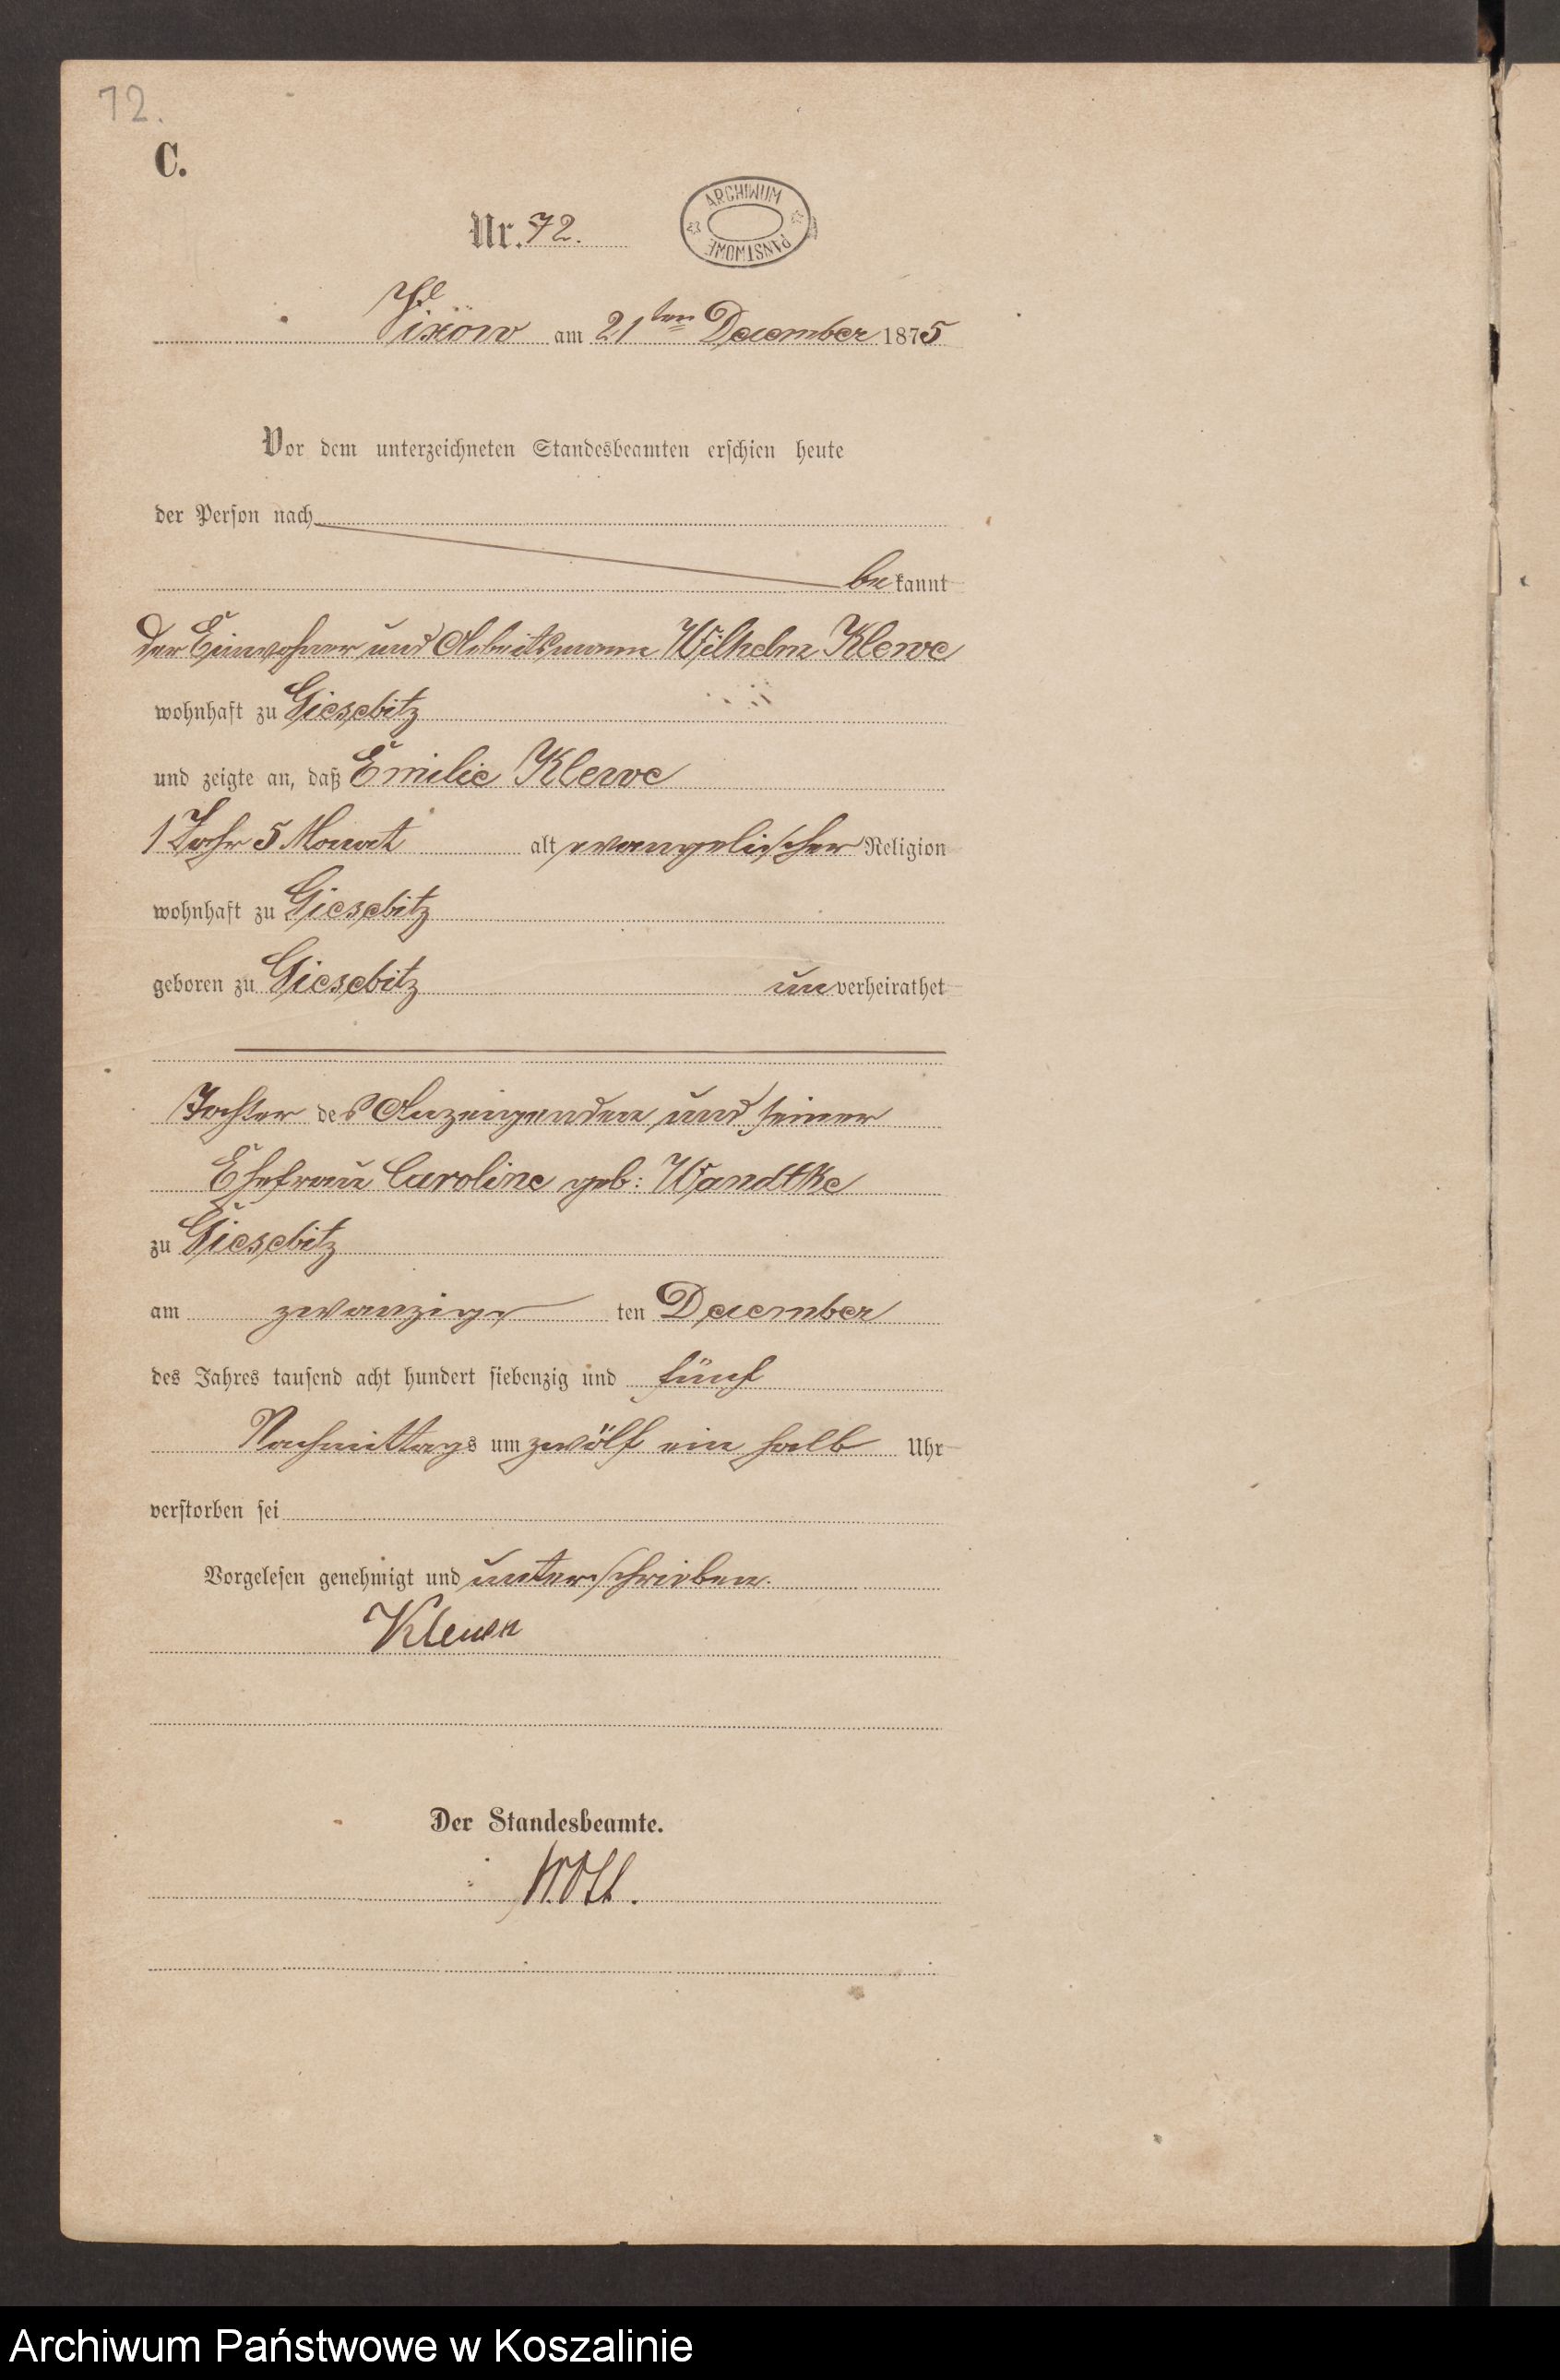 72.
C.
Nr. 72.
ARCHIWUM PAŃSTWOWE
Vixow am 21ten December 1875
Vor dem unterzeichneten Standesbeamten erschien heute
der Person nach
bekannt
der Einwohner und Arbeitsmann Wilhelm Klewe
wohnhaft zu Giesebitz
und zeigte an, daß Emilie Klewe
1 Jahr 5 Monat alt evangelischer Religion
wohnhaft zu Giesebitz
geboren zu Giesebitz unverheirathet
Tochter des Anzeigenden und seiner
Ehefrau Caroline geb: Wandtke
zu Giesebitz
am zwanzigsten December
des Jahres tausend acht hundert siebenzig und fünf
Nachmittags um zwölf ein halb Uhr
verstorben sei
Vorgelesen genehmigt und unterschrieben.
Klewe
Der Standesbeamte.
Archiwum Państwowe w Koszalinie